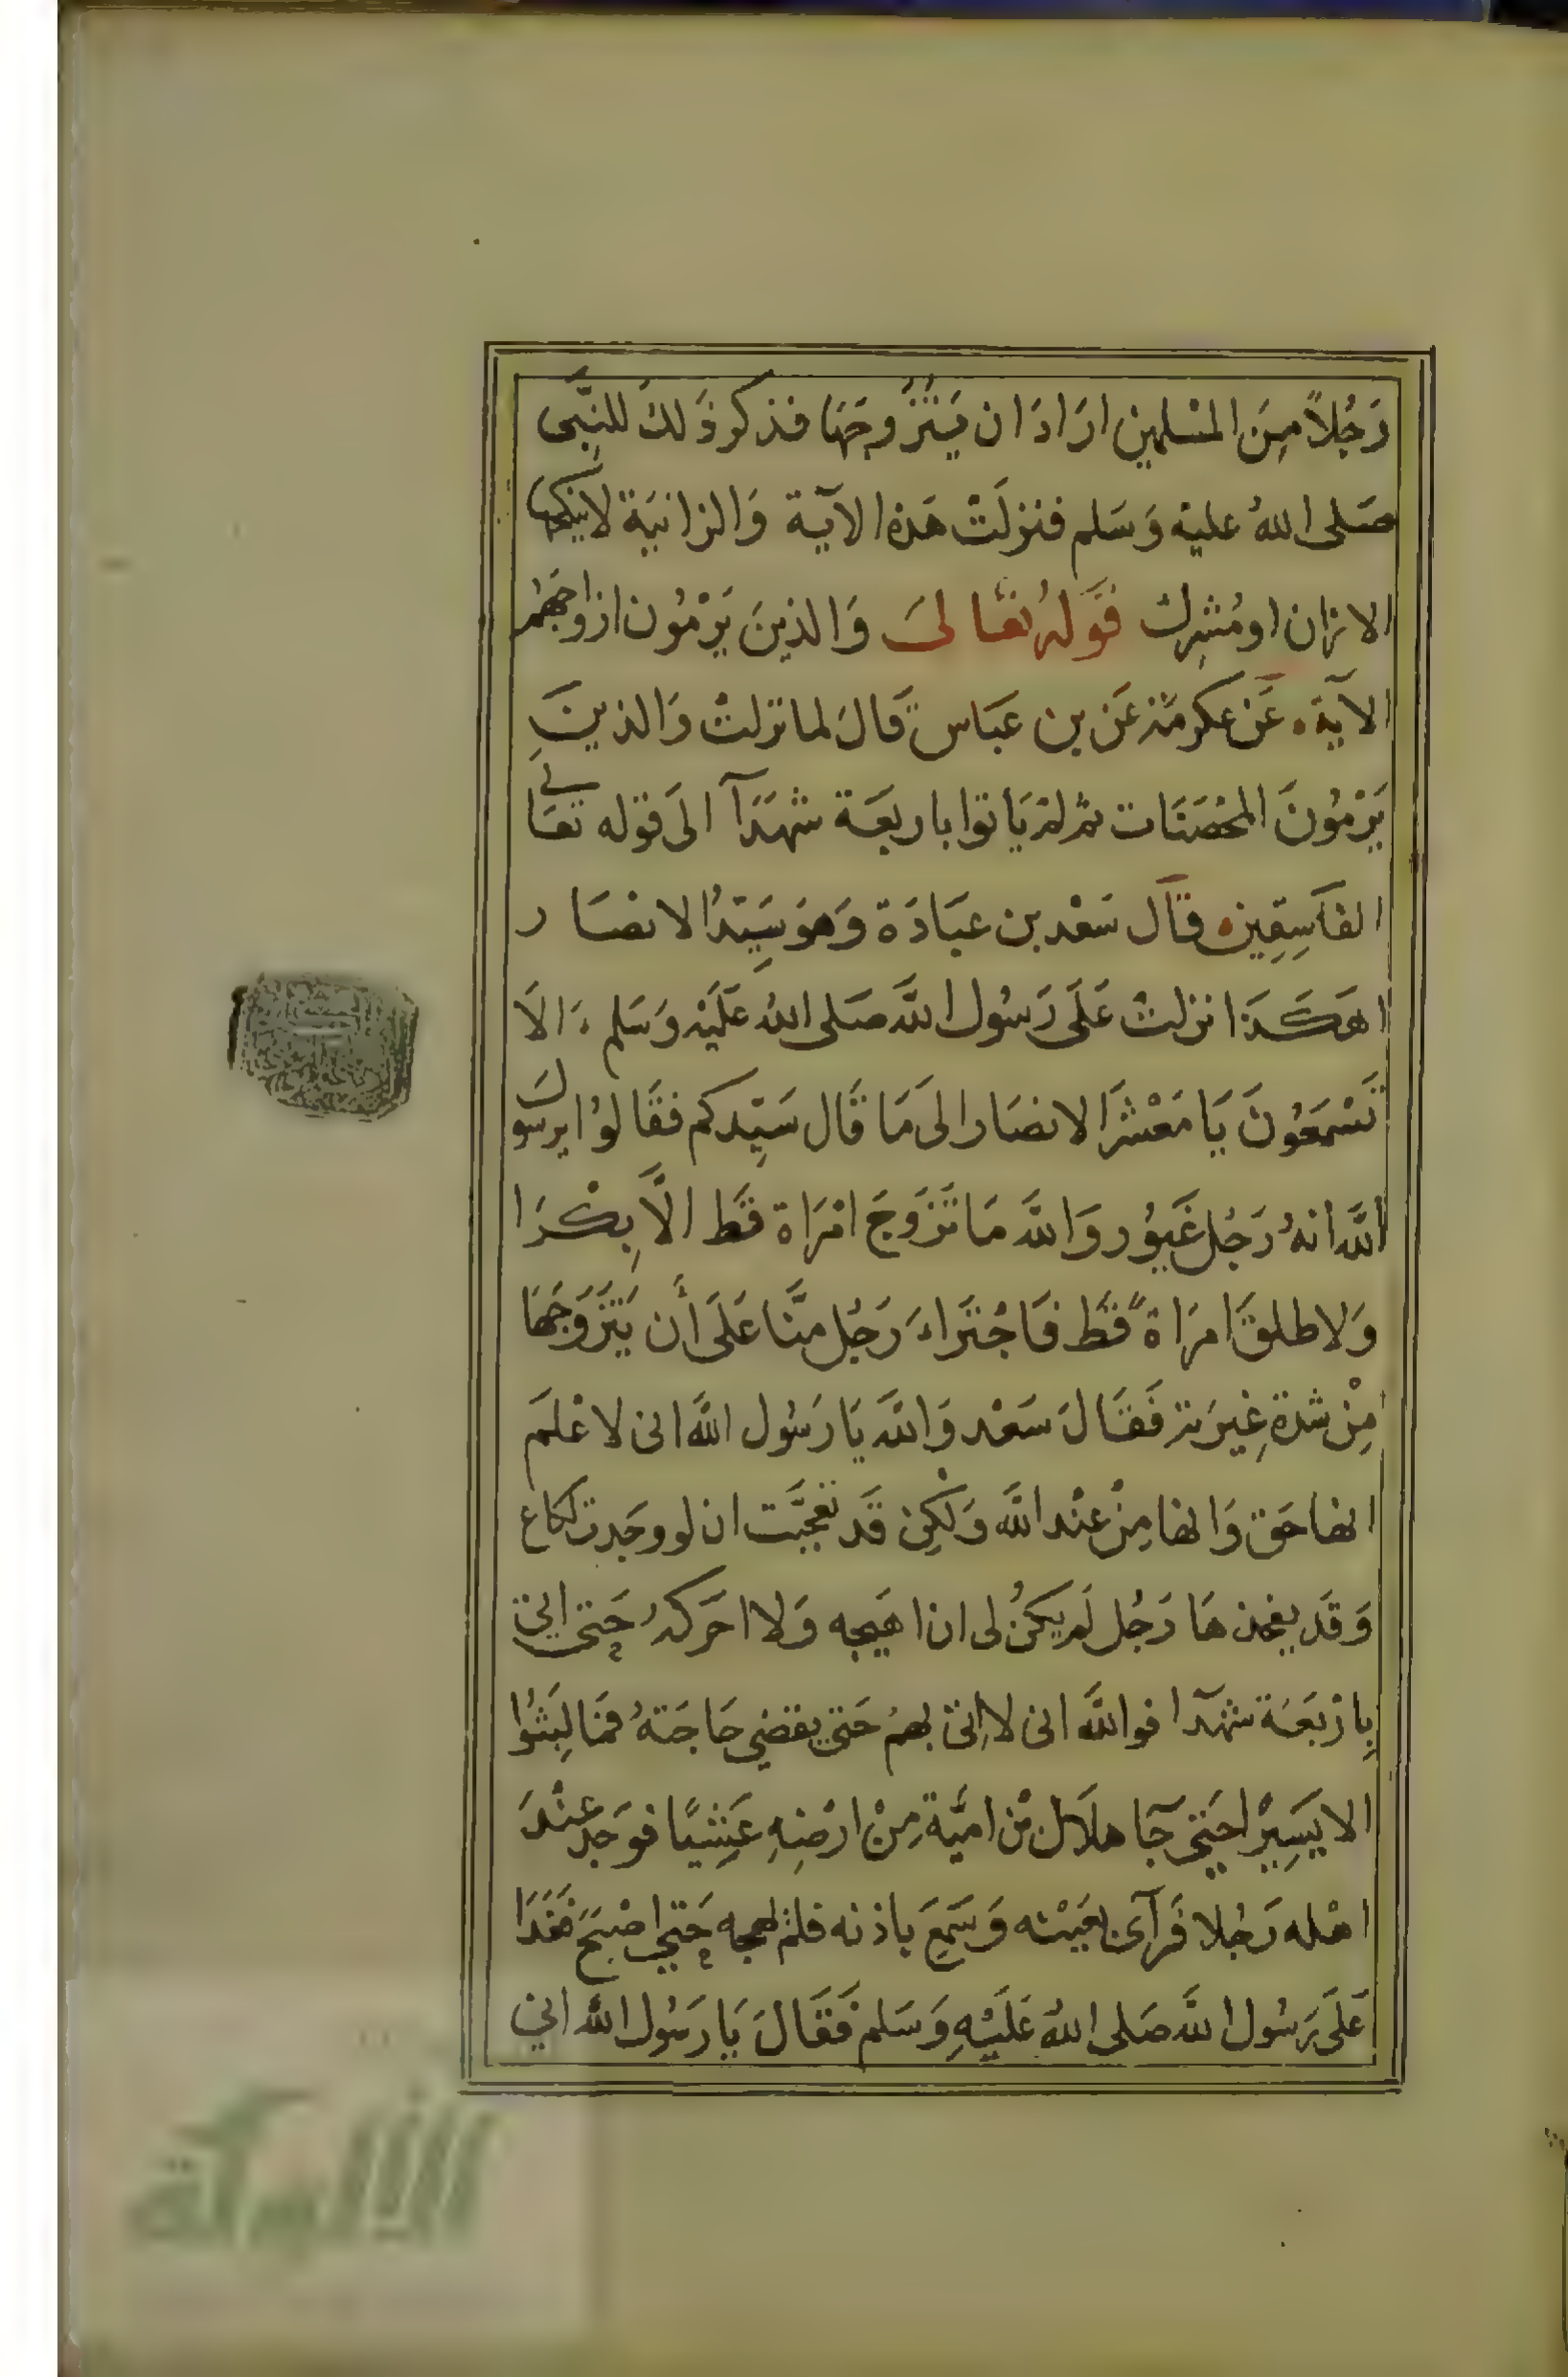 رَجُلاً مِنَ المسْلمين ارَادَ ان يَتَزَوجَهَا فذكر ذَلكَ للنبِّى
صَلى اللهُ عليْه وَسَلم فنزلَتْ هَذه الآيَة وَالزانيَة لا ينكحها
الا زان او مُشرك قَولهُ تعَالىَ وَالذينَ يَرْمُون ازواجَهُمْ
الآيَة عَن عكرمَة عَن بن عبَاس قَالَ لما نزلتْ وَالذينَ
يَرْمُونَ المحْصَنَات ثم لمْ يَاتوا باربعَة شهَدَآ الىَ قوله تعَالى
الفَاسِقِين قَال سَعْد بن عبَادَة وَهوَ سَيِّدُ الانصَار
اهَكَذَا انزلتْ عَلَى رَسُول اللَّه صَلى اللهُ عَلَيْه وَسَلم الاَ
تَسْمَعُونَ يَا مَعْشَرَ الانصَار الىَ مَا قَال سَيِّدكم فقَالوُا يرسول
اللَّه انهُ رَجُل غَيوُر وَاللَّه مَا تَزَوجَ امْرَاة قَط الاَّ بِكْرَا
وَلا طلقَ امرَاةً قَط فَاجْتَراءَ رَجُل منَّا عَلَى أَن يَتَزَوَجَهَا
مِنْ شدة غِيرَته فَقَالَ سَعْد وَاللَّه يَا رَسُول اللَّه انى لاعْلَم
انها حَق وَانها مِنْ عِنْد اللَّه وَلَكِن قَد تعَجبَّت ان لو وجَدت لكاع
وَقَد يفخذهَا رَجُل لَم يكنُ لى ان اهَيجه وَلا احَركهُ حَتى اتى
بِارْبَعَة شهَدَآ فواللَّه انى لا اتى بهمْ حَتى يقضى حَاجَتهُ فمَا لبَثوُا
الا يَسِيرْا حَتى جَآ هلاَل بْن اميَّة مِنْ ارْضِهِ عَشِيًا فوَجد عنْدَ
اهْله رَجُلا فَرَآى بعَيْنه وَسَمعَ باذنه فلمْ يهجه حَتى اصْبَحَ فَغَدَا
عَلَى رَسُول اللَّه صَلى اللهُ عَلَيْهِ وَسَلم فَقَالَ يَا رَسُول اللَّه اني
الألوكة